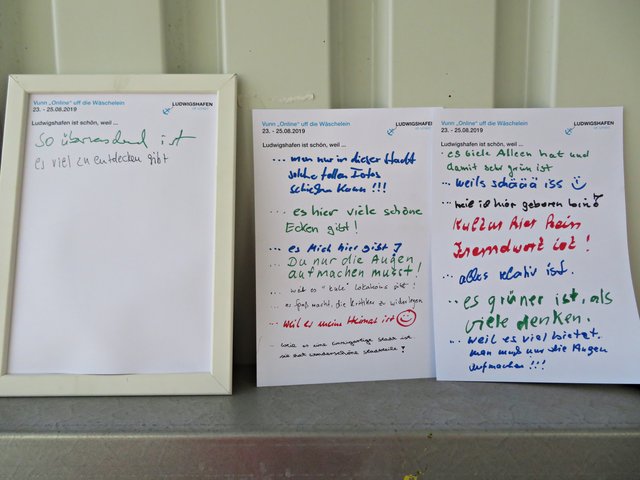 Vunn „Online“ uff die Wäschelein
23. - 25.08.2019
LUDWIGSHAFEN
Ludwigshafen ist schön, weil ...
so überraschend ist
es viel zu entdecken gibt
Vunn „Online“ uff die Wäschelein
23. - 25.08.2019
LUDWIGSHAFEN
Ludwigshafen ist schön, weil ...
... man nur in dieser Stadt
solche tollen Fotos
schießen kann!!!
... es hier viele schöne
Ecken gibt!
... es mich hier gibt
Du nur die Augen
aufmachen musst!
... weil es "kule" lokations gibt!
... es Spaß macht, die Kritiker zu widerlegen
... weil es meine Heimat ist
... weil es eine einzigartige Stadt ist
sie hat wunderschöne Stadtteile!
Vunn „Online“ uff die Wäschelein
23. - 25.08.2019
LUDWIGSHAFEN
Ludwigshafen ist schön, weil ...
... es viele Alleen hat und
damit sehr grün ist
... weils schäää iss
... weil ich hier geboren bin
Kultur hier kein
Fremdwort ist!
... alles relativ ist.
... es grüner ist, als
viele denken.
... weil es viel bietet.
man muß nur die Augen
aufmachen!!!